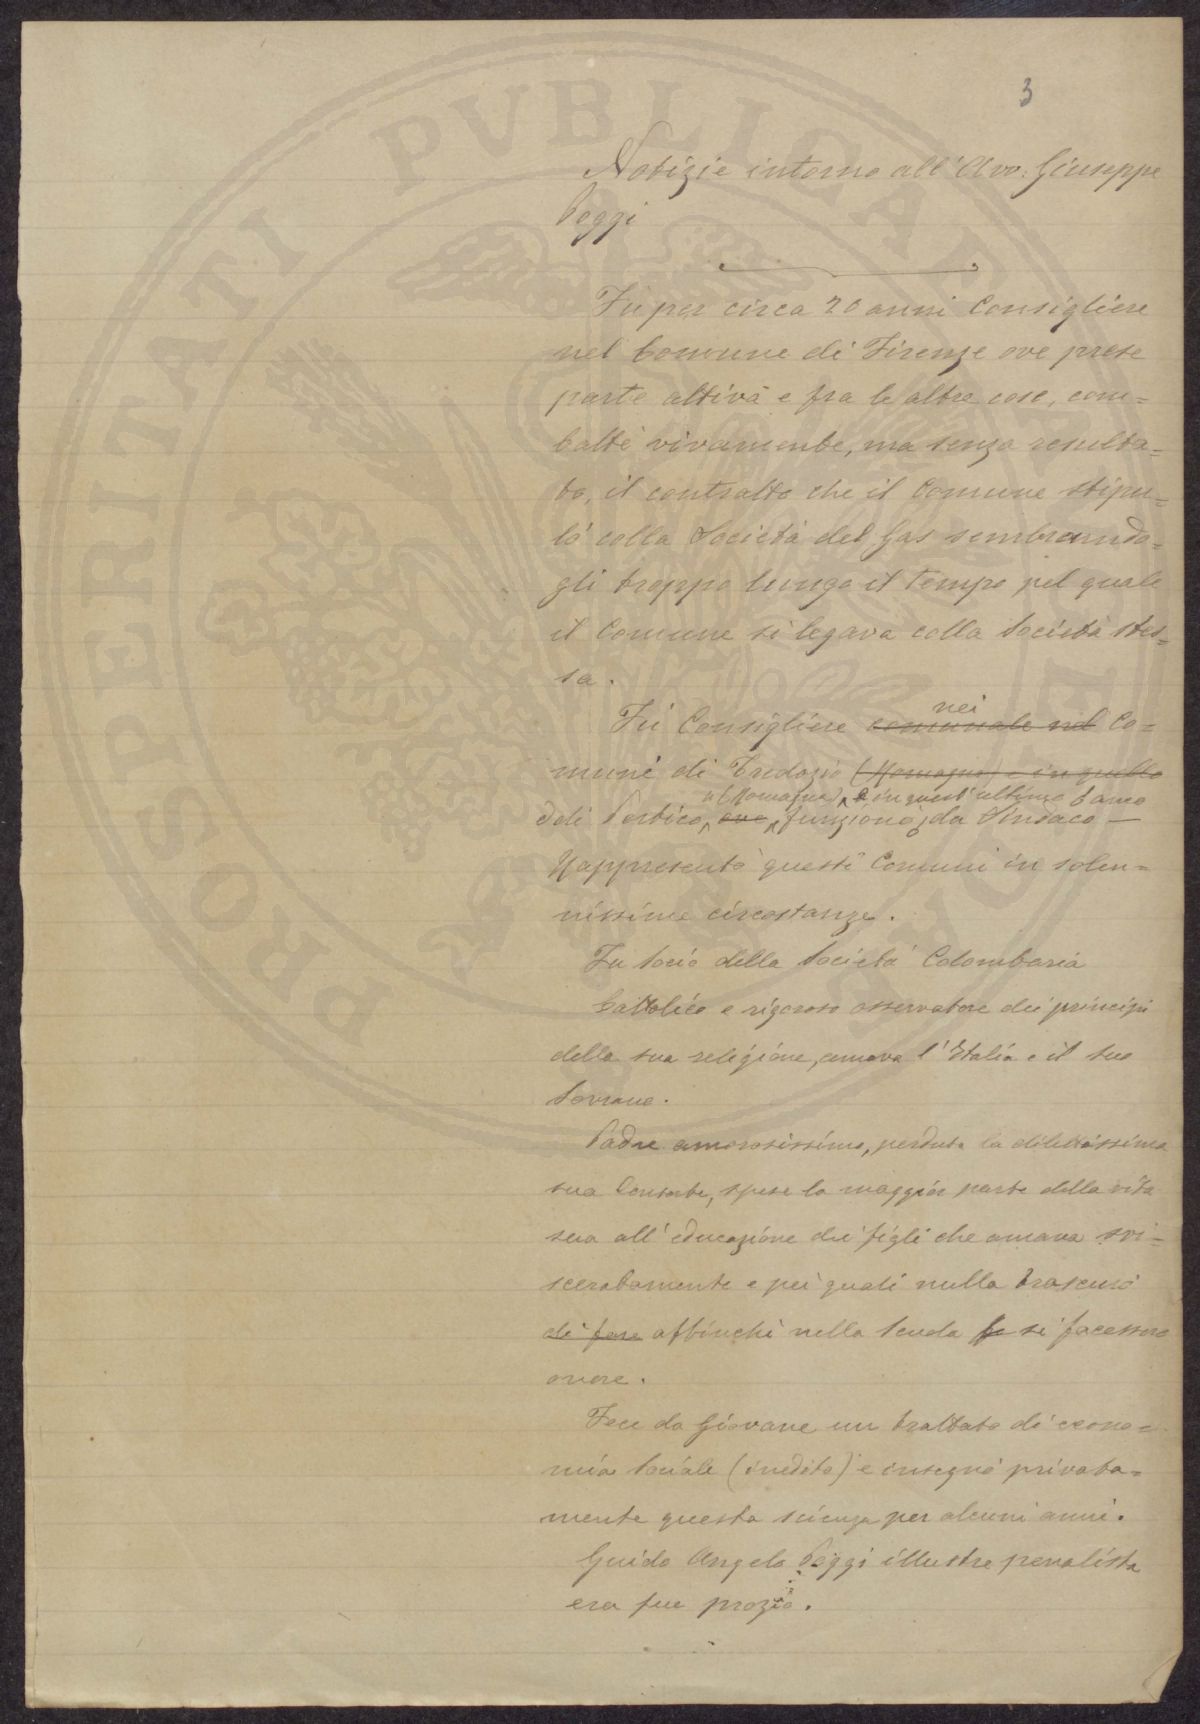 3
Notizie intorno all'Avv. Giuseppe
Poggi
Fu per circa 20 anni Consigliere
nel Comune di Firenze ove prese
parte attiva e fra le altre cose, com=
battè vivamente, ma senza resulta=
to, il contratto che il Comune stipu=
lò colla Società del Gas sembrando=
gli troppo lungo il tempo pel quale
il Comune si legava colla Società stes=
sa.
nei
Fu Consigliere comunale nel Co=
muni di Tredozio (Romagna) e in quello
(Romagna) e in quest'ultimo banco
di Portico, ove funzionò da Sindaco —
Rappresentò questi Comuni in solen=
nissime circostanze.
Fu Socio della Società Colombaria
Cattolico e rigoroso osservatore dei principi
della sua religione, amava l'Italia e il suo
Sovrano.
Padre amorosissimo, perduta la dilettissima
sua Consorte, spese la maggior parte della vita
sua all'educazione dei figli che amava svi=
sceratamente e pei quali nulla trascurò
di fare affinchè nella Scuola fe si facessero
onore.
Fece da Giovane un trattato di econo=
mia Sociale (inedito) e insegnò privata=
mente questa scienza per alcuni anni.
Guido Angelo Poggi illustre penalista
era suo prozio.
PROSPERITATI PVBLICAE